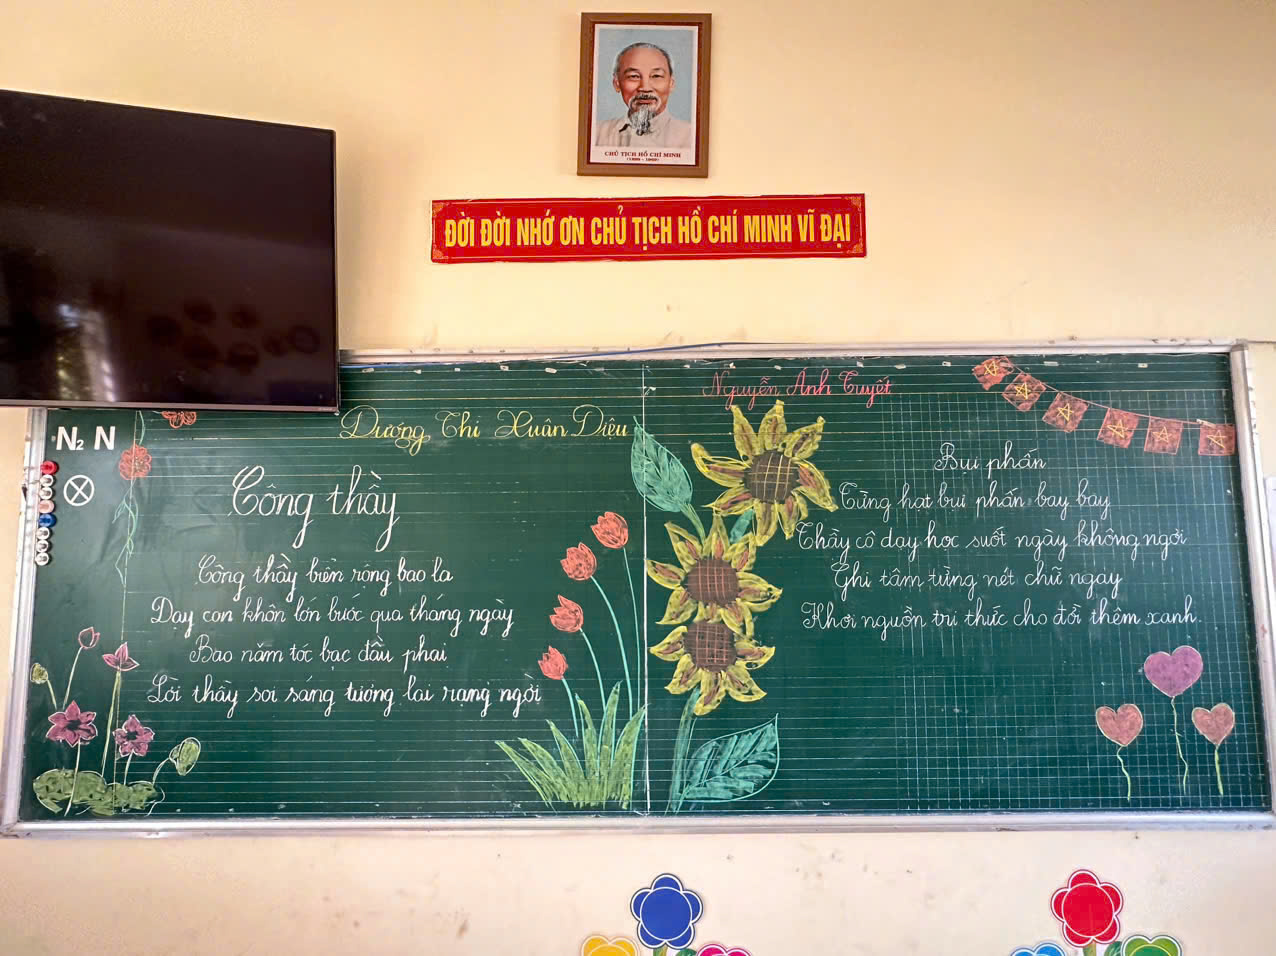 CHỦ TỊCH HỒ CHÍ MINH
(1890 - 1969)
ĐỜI ĐỜI NHỚ ƠN CHỦ TỊCH HỒ CHÍ MINH VĨ ĐẠI
N₂ N
Dương Thị Xuân Diệu
Công thầy
Công thầy biển rộng bao la
Dạy con khôn lớn bước qua tháng ngày
Bao năm tóc bạc đầu phai
Lời thầy soi sáng tương lai rạng ngời
Nguyễn Anh Tuyết
Bụi phấn
Từng hạt bụi phấn bay bay
Thầy cô dạy học suốt ngày không ngơi
Ghi tâm từng nét chữ ngay
Khơi nguồn tri thức cho đời thêm xanh.